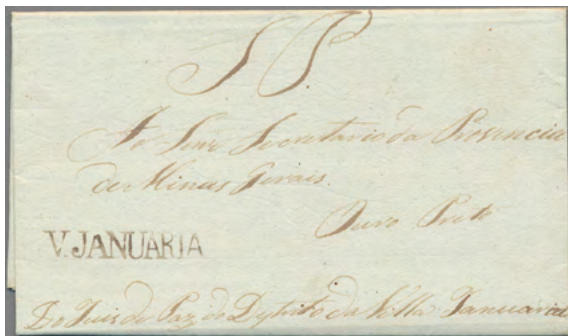 S P
Ao Senr Secretario da Provencia
de Minas Geraes.
Ouro Preto
V. JANUARIA
Do Juis de Paz do Dystrito da Villa Januaria